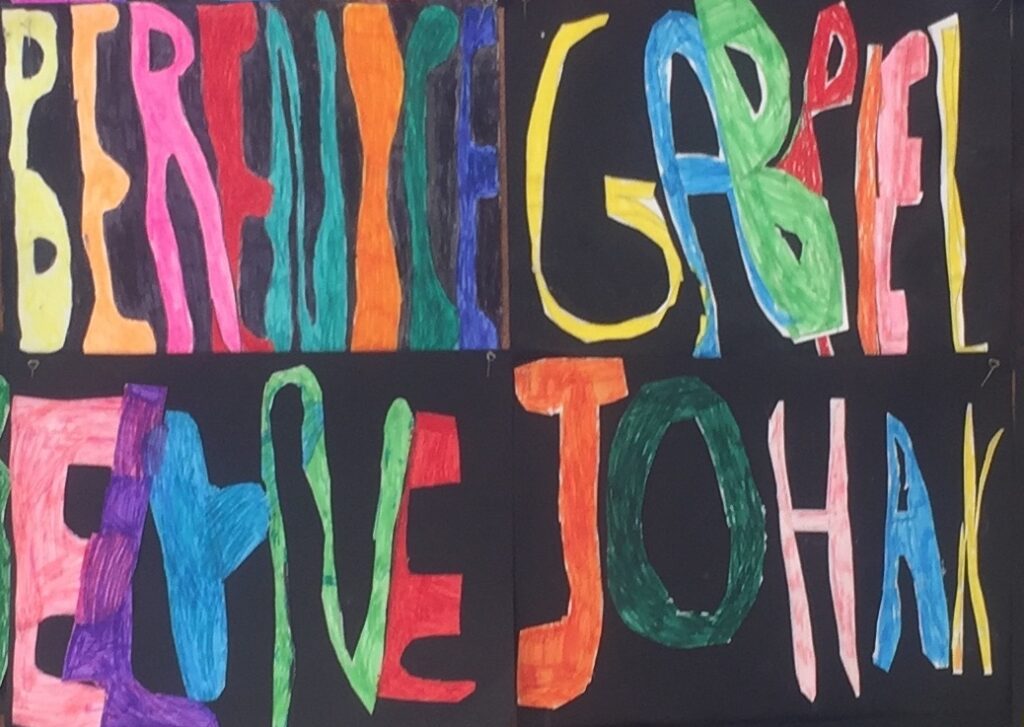 BERENICE
GABRIEL
ELYNE
JOHAN